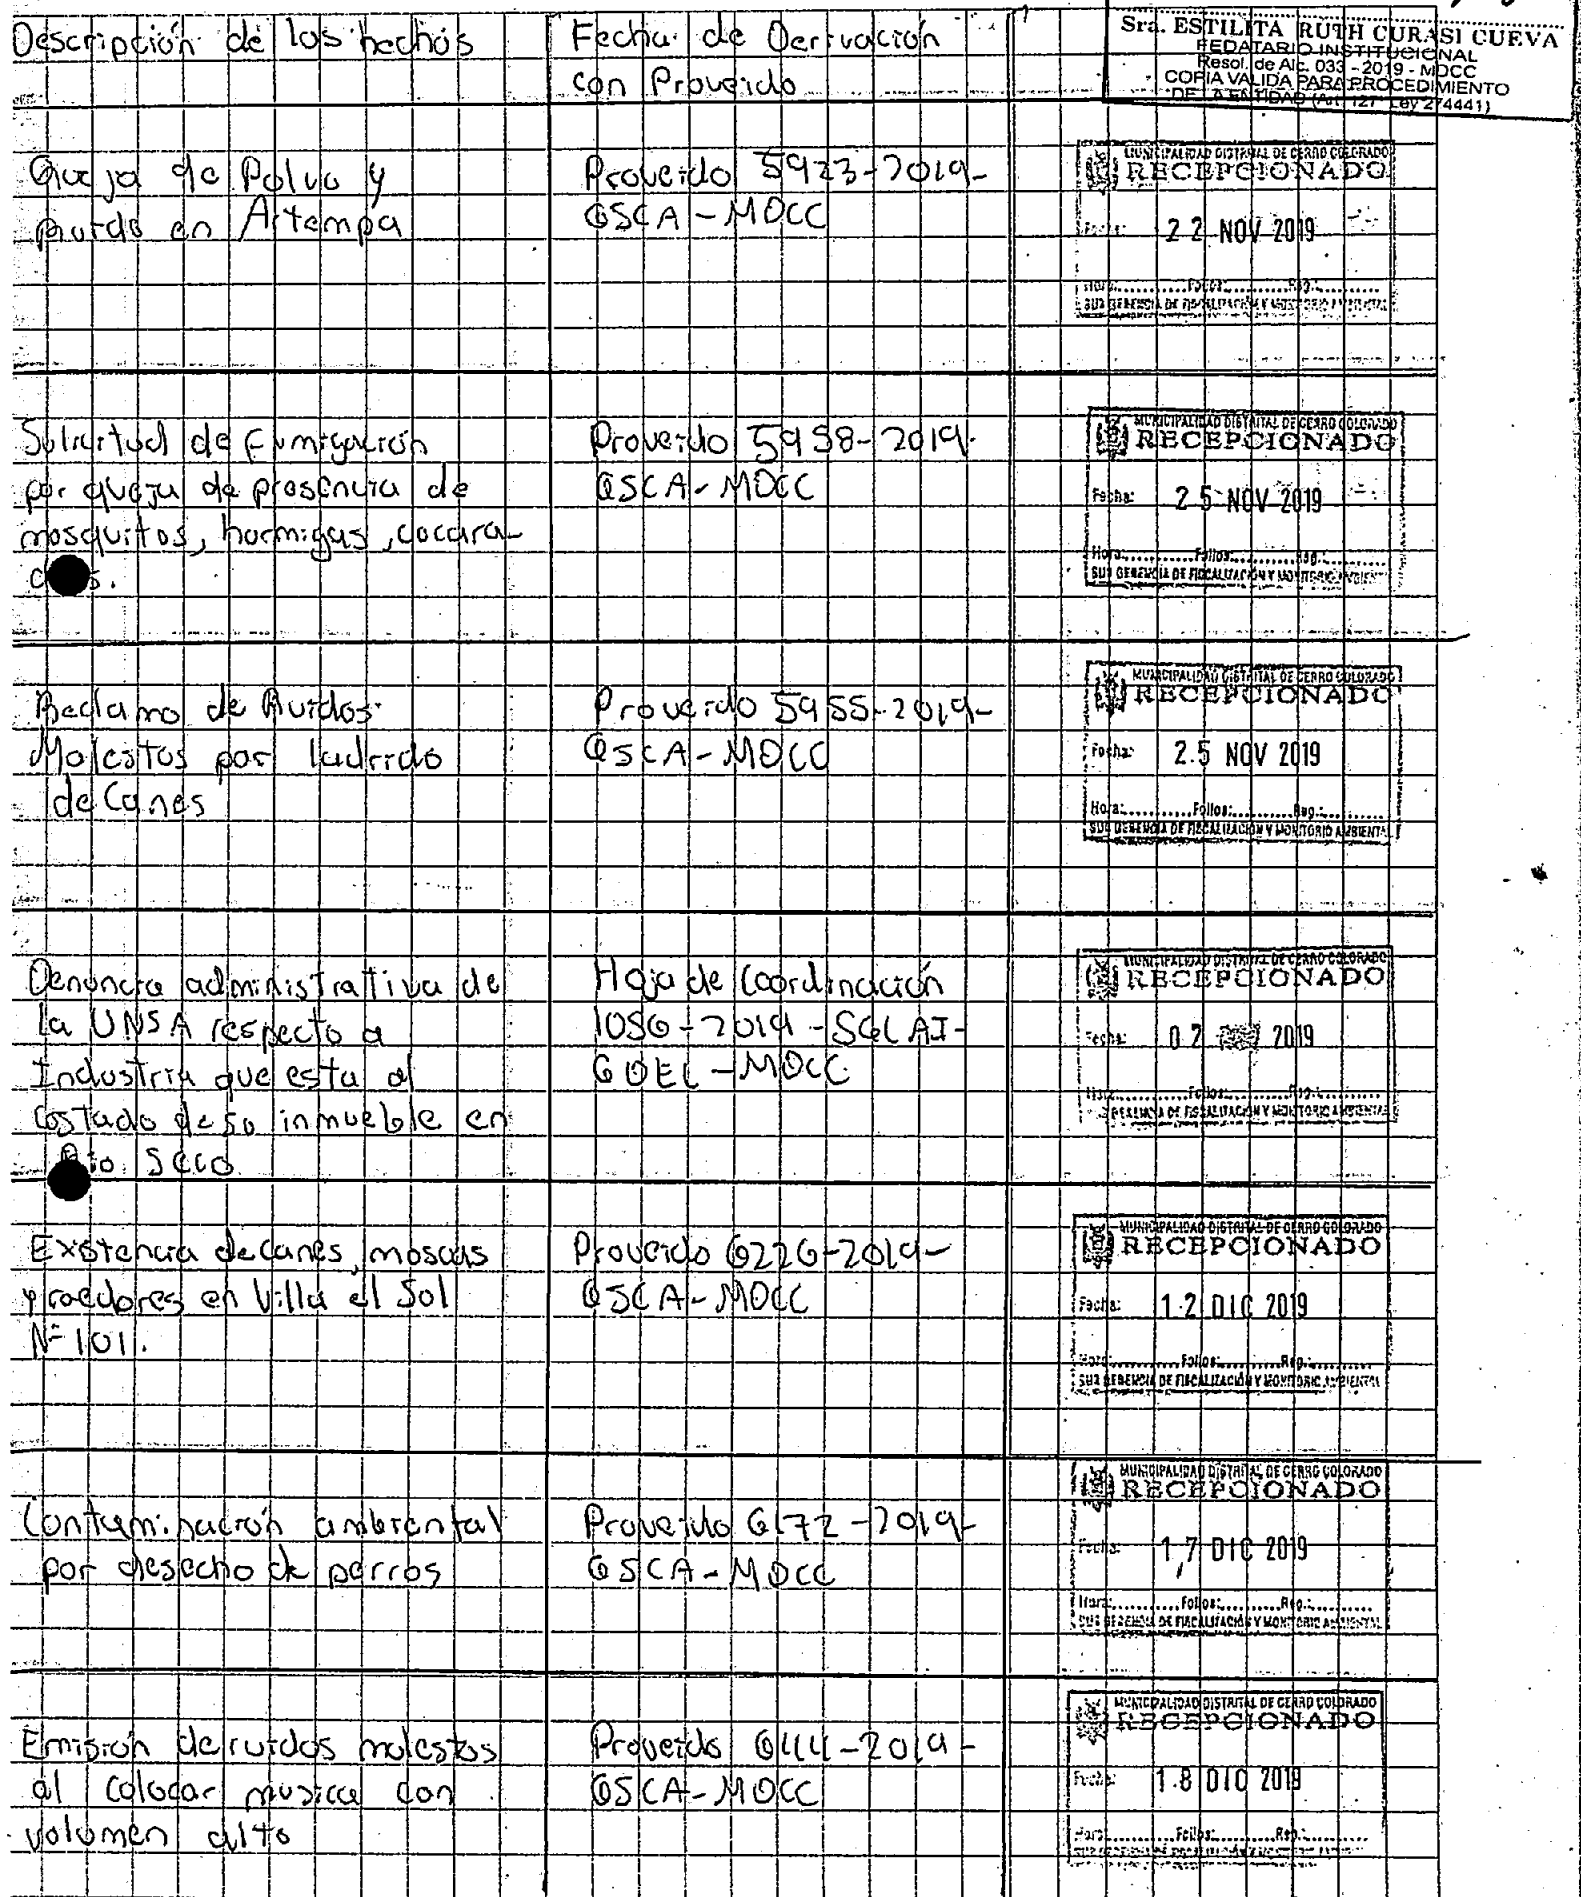 Descripción de los hechos
Fecha de Derivación
con Proveido
Sra. ESTILITA RUTH CURASI CUEVA
FEDATARIO INSTITUCIONAL
Resol. de Alc. 033 - 2019 - MDCC
COPIA VALIDA PARA PROCEDIMIENTO
DE LA ENTIDAD (Art. 127° Ley 274441)
Queja de Polvo y
ruido en Artempa
Proveido 5923-2019-
GSCA-MDCC
MUNICIPALIDAD DISTRITAL DE CERRO COLORADO
RECEPCIONADO
Fecha: 22 NOV 2019
Hora:.......... Folios:.......... Reg.:..........
SUB GERENCIA DE FISCALIZACIÓN Y MONITOREO AMBIENTAL
Solicitud de fumigación
por queja de presencia de
mosquitos, hormigas, cucara-
Proveido 5958-2019-
GSCA-MDCC
MUNICIPALIDAD DISTRITAL DE CERRO COLORADO
RECEPCIONADO
Fecha: 25 NOV 2019
Hora:.......... Folios:.......... Reg.:..........
SUB GERENCIA DE FISCALIZACIÓN Y MONITORIO AMBIENTAL
Reclamo de Ruidos
Molestos por ladrido
de Canes
Proveido 5955-2019-
GSCA-MDCC
MUNICIPALIDAD DISTRITAL DE CERRO COLORADO
RECEPCIONADO
Fecha: 25 NOV 2019
Hora:.......... Folios:.......... Reg.:..........
SUB GERENCIA DE FISCALIZACIÓN Y MONITORIO AMBIENTAL
Denuncia administrativa de
la UNSA respecto a
Industria que esta al
costado de su inmueble en
Rio Seco
Hoja de Coordinación
1056-2019-SGLAI-
GDEL-MDCC
MUNICIPALIDAD DISTRITAL DE CERRO COLORADO
RECEPCIONADO
Fecha: 02 2019
Hora:.......... Folios:.......... Reg.:..........
GERENCIA DE FISCALIZACIÓN Y MONITORIO AMBIENTAL
Existencia de canes, moscas
y roedores en Villa el Sol
N° 101.
Proveido 6226-2019-
GSCA-MDCC
MUNICIPALIDAD DISTRITAL DE CERRO COLORADO
RECEPCIONADO
Fecha: 12 DIC 2019
Hora:.......... Folios:.......... Reg.:..........
SUB GERENCIA DE FISCALIZACIÓN Y MONITORIO AMBIENTAL
Contaminación ambiental
por desecho de perros
Proveido 6172-2019-
GSCA-MDCC
MUNICIPALIDAD DISTRITAL DE CERRO COLORADO
RECEPCIONADO
Fecha: 17 DIC 2019
Hora:.......... Folios:.......... Reg.:..........
SUB GERENCIA DE FISCALIZACIÓN Y MONITORIO AMBIENTAL
Emisión de ruidos molestos
al colocar musica con
volumen alto
Proveido
GSCA-MDCC
MUNICIPALIDAD DISTRITAL DE CERRO COLORADO
RECEPCIONADO
Fecha: 18 DIC 2019
Hora:.......... Folios:.......... Reg.:..........